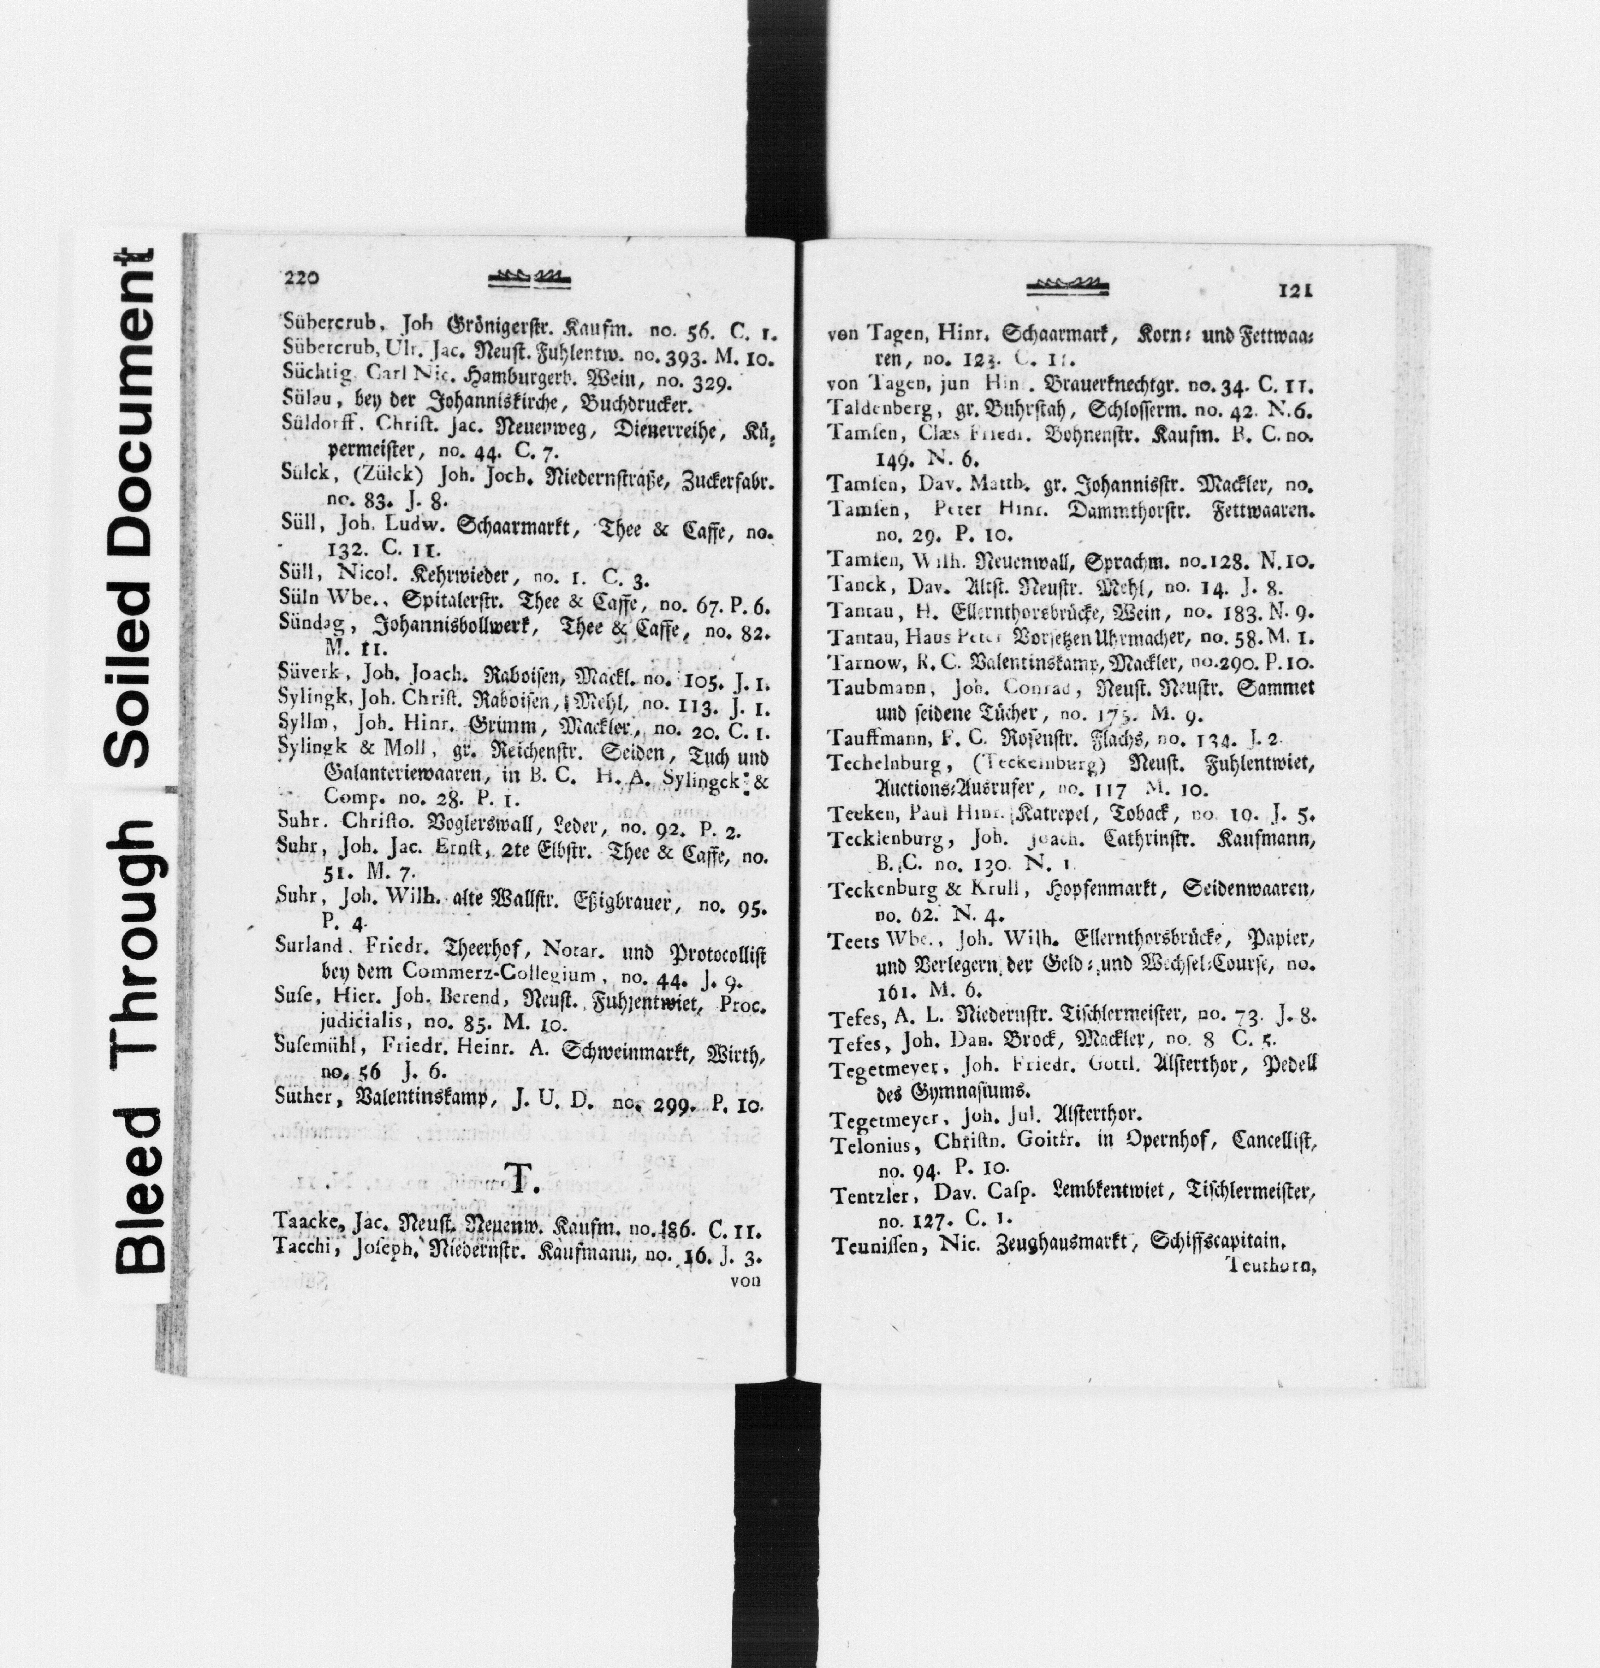 Bleed Through Soiled Document
220
Sübercrub, Joh Grönigerstr. Kaufm. no. 56. C. 1.
Sübercrub, Ulr. Jac. Neust. Fuhlentw. no. 393. M. 10.
Süchtig Carl Nic. Hamburgerb. Wein, no. 329.
Sülau, bey der Johanniskirche, Buchdrucker.
Süldorff, Christ. Jac. Neuerweg, Dienerreihe, Kü-
permeister, no. 44. C. 7.
Sülck, (Zülck) Joh. Joch. Niedernstraße, Zuckerfabr.
no. 83. J. 8.
Süll, Joh. Ludw. Schaarmarkt, Thee & Caffe, no.
132. C. 11.
Süll, Nicol. Kehrwieder, no. 1. C. 3.
Süln Wbe., Spitalerstr. Thee & Caffe, no. 67. P. 6.
Sündag, Johannisbollwerk, Thee & Caffe, no. 82.
M. 11.
Süverk, Joh. Joach. Raboisen, Mackl. no. 105. J. 1.
Sylingk, Joh. Christ. Raboisen, Mehl, no. 113. J. 1.
Syllm, Joh. Hinr. Grimm, Mackler, no. 20. C. 1.
Sylingk & Moll, gr. Reichenstr. Seiden, Tuch und
Galanteriewaaren, in B. C. H. A. Sylingck &
Comp. no. 28. P. 1.
Suhr. Christo. Voglerswall, Leder, no. 92. P. 2.
Suhr, Joh. Jac. Ernst, 2te Elbstr. Thee & Caffe, no.
51. M. 7.
Suhr, Joh. Wilh. alte Wallstr. Eßigbrauer, no. 95.
P. 4.
Surland. Friedr. Theerhof, Notar. und Protocollist
bey dem Commerz-Collegium, no. 44. J. 9.
Suse, Hier. Joh. Berend, Neust. Fuhlentwiet, Proc.
judicialis, no. 85. M. 10.
Susemühl, Friedr. Heinr. A. Schweinmarkt, Wirth,
no. 56 J. 6.
Suther, Valentinskamp, J. U. D. no. 299. P. 10.
T.
Taacke, Jac. Neust. Neuenw. Kaufm. no. 186. C. 11.
Tacchi, Joseph, Niedernstr. Kaufmann, no. 16. J. 3.
von
121
von Tagen, Hinr. Schaarmark, Korn- und Fettwaa-
ren, no. 123. C. 11.
von Tagen, jun Hin. Brauerknechtgr. no. 34. C. 11.
Taldenberg, gr. Buhrstah, Schlosserm. no. 42. N. 6.
Tamsen, Claes Friedr. Bohnenstr. Kaufm. B. C. no.
149. N. 6.
Tamsen, Dav. Matth. gr. Johannisstr. Mackler, no.
Tamsen, Peter Hinr. Dammthorstr. Fettwaaren.
no. 29. P. 10.
Tamsen, Wilh. Neuenwall, Sprachm. no. 128. N. 10.
Tanck, Dav. Altst. Neustr. Mehl, no. 14. J. 8.
Tantau, H. Ellernthorsbrücke, Wein, no. 183. N. 9.
Tantau, Haus Peter Vorsetzen Uhrmacher, no. 58. M. 1.
Tarnow, R. C. Valentinskamp, Mackler, no. 290. P. 10.
Taubmann, Joh. Conrad, Neust. Neustr. Sammet
und seidene Tücher, no. 175. M. 9.
Tauffmann, F. C. Rosenstr. Flachs, no. 134. J. 2.
Techelnburg, (Teckelnburg) Neust. Fuhlentwiet,
Auctions-Ausrufer, no. 117 M. 10.
Tecken, Paul Hinr. Katrepel, Toback, no. 10. J. 5.
Tecklenburg, Joh. Joach. Cathrinstr. Kaufmann,
B. C. no. 130. N. 1.
Teckenburg & Krull, Hopfenmarkt, Seidenwaaren,
no. 62. N. 4.
Teets Wbe., Joh. Wilh. Ellernthorsbrücke, Papier,
und Verlegern der Geld- und Wechsel-Course, no.
161. M. 6.
Tefes, A. L. Niedernstr. Tischlermeister, no. 73. J. 8.
Tefes, Joh. Dan. Brock, Mackler, no. 8 C. 5.
Tegetmeyer, Joh. Friedr. Gottl. Alsterthor, Pedell
des Gymnasiums.
Tegetmeyer, Joh. Jul. Alsterthor.
Telonius, Christn. Gottfr. in Opernhof, Cancellist,
no. 94. P. 10.
Tentzler, Dav. Casp. Lembkentwiet, Tischlermeister,
no. 127. C. 1.
Teunissen, Nic. Zeughausmarkt, Schiffscapitain.
Teuthorn,